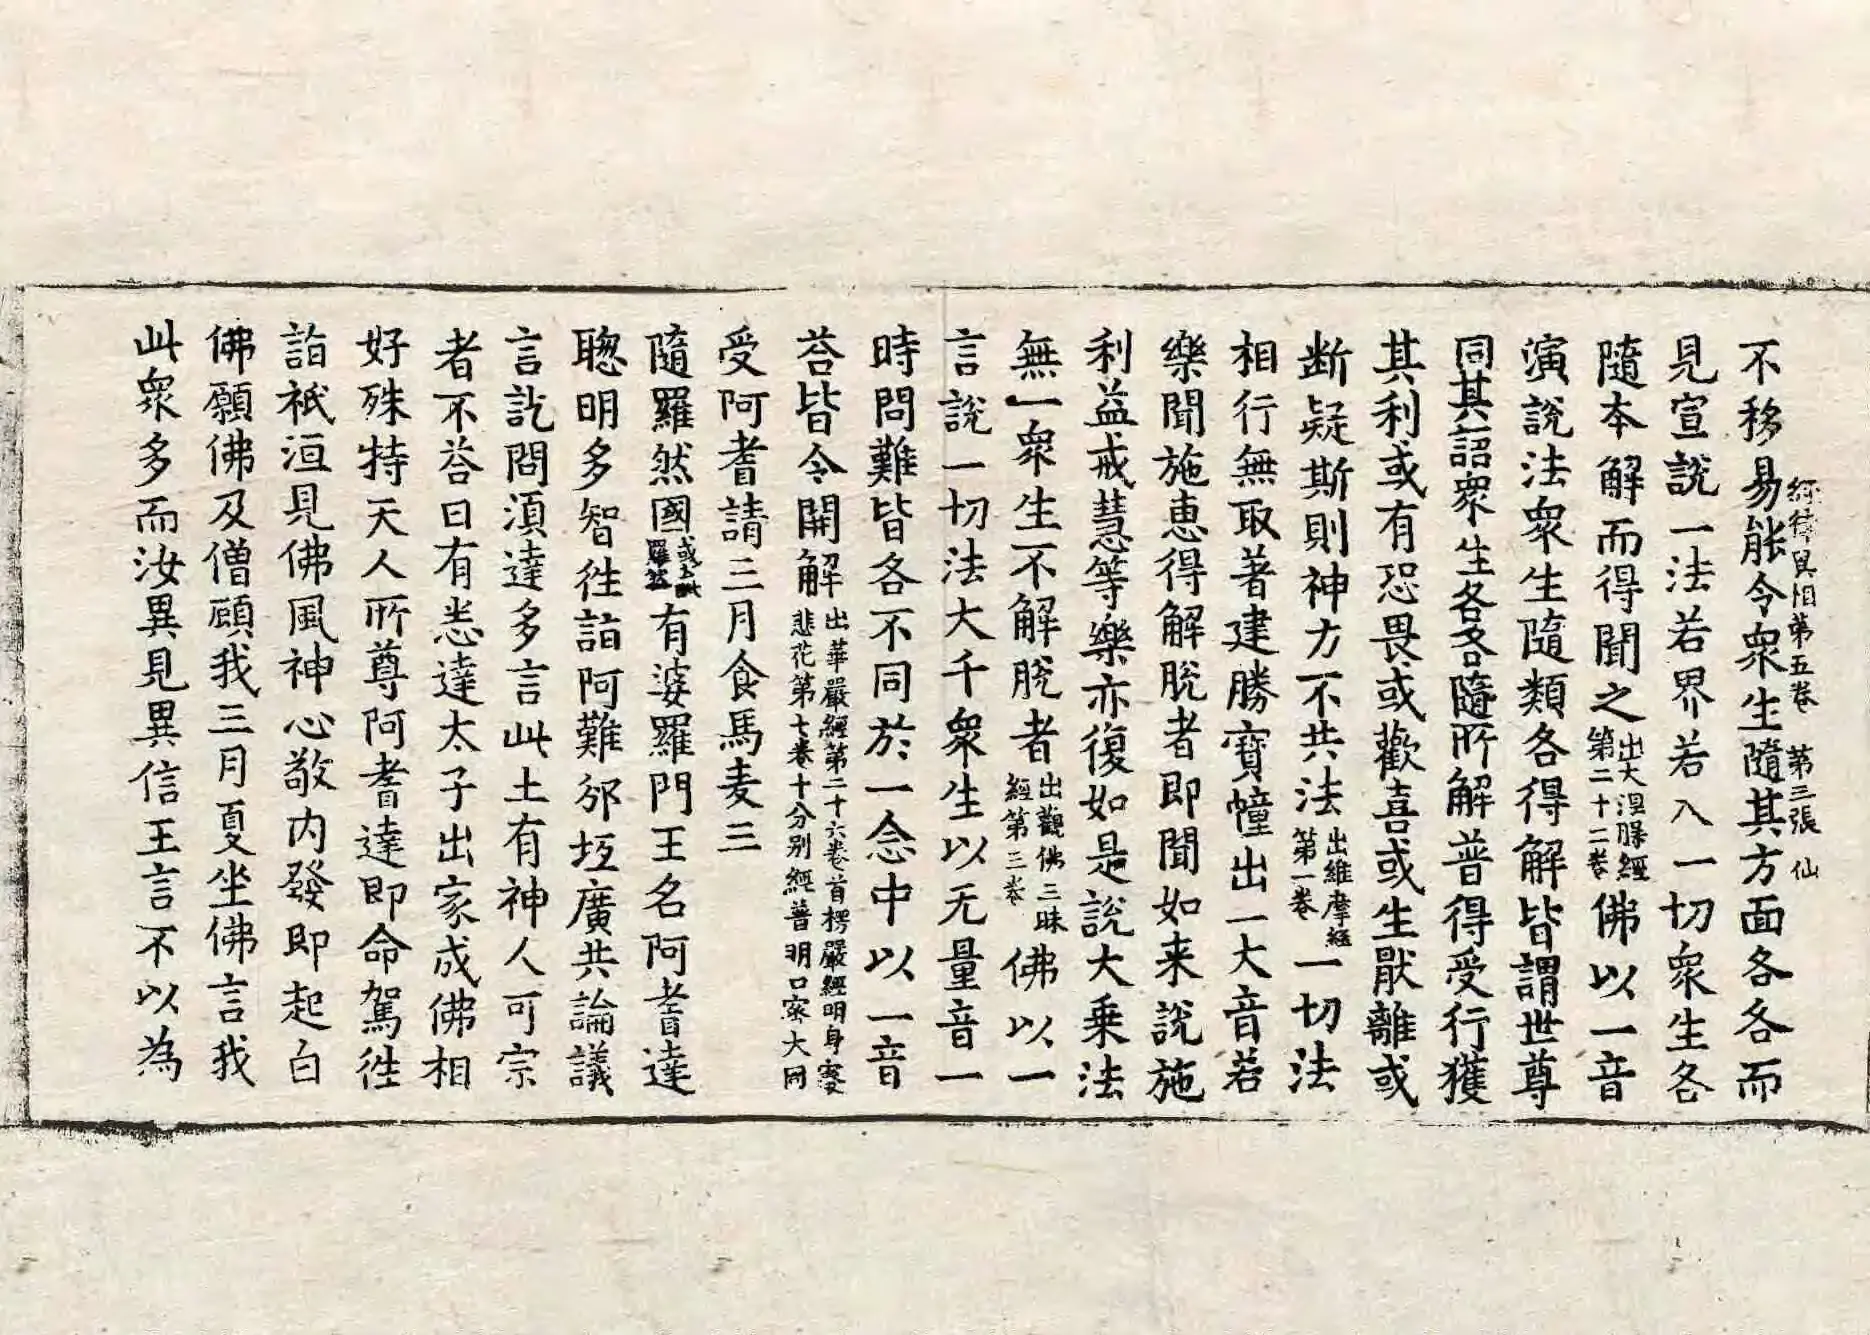 經律異相第五卷 第三張 仙
不移易能令衆生隨其方面各各而
見宣說一法若界若入一切衆生各
隨本解而得聞之出大涅槃經第二十二卷佛以一音
演說法衆生隨類各得解皆謂世尊
同其語衆生各各隨所解普得受行獲
其利或有恐畏或歡喜或生厭離或
断疑斯則神方不共法出維摩經第一卷一切法
相行無取著建勝寶幢出一大音若
樂聞施恵得解脫者即聞如来說施
利益戒慧等樂亦復如是說大乗法
無一衆生不解脫者出觀佛三昧經第三卷佛以一
言說一切法大千衆生以无量音一
時問難皆各不同於一念中以一音
荅皆令開解出華嚴經第二十六卷首楞嚴經明身密悲花第七卷十分別經普明口密大同
受阿耆請三月食馬麦三
隨羅然國或云毗羅然有婆羅門王名阿耆達
聰明多智徃詣阿難邠坻廣共論議
言訖問湏達多言此土有神人可宗
者不荅曰有悉達太子出家成佛相
好殊特天人所尊阿耆達即命駕徃
詣祇洹見佛風神心敬内發即起白
佛願佛及僧顧我三月夏坐佛言我
此衆多而汝異見異信王言不以為